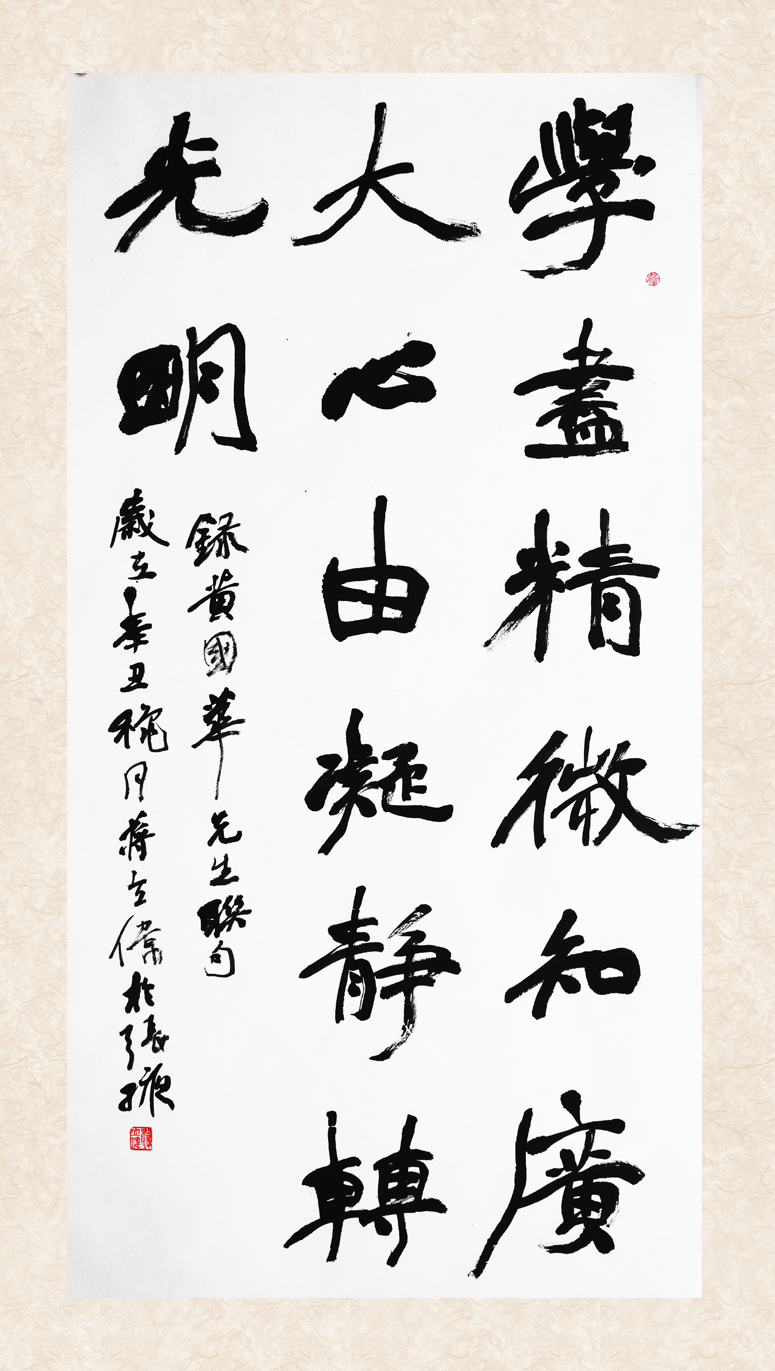 學盡精微知廣
大心由凝靜轉
光明
錄黃國華先生聯句
歲在辛丑桃月蔣立偉於張掖